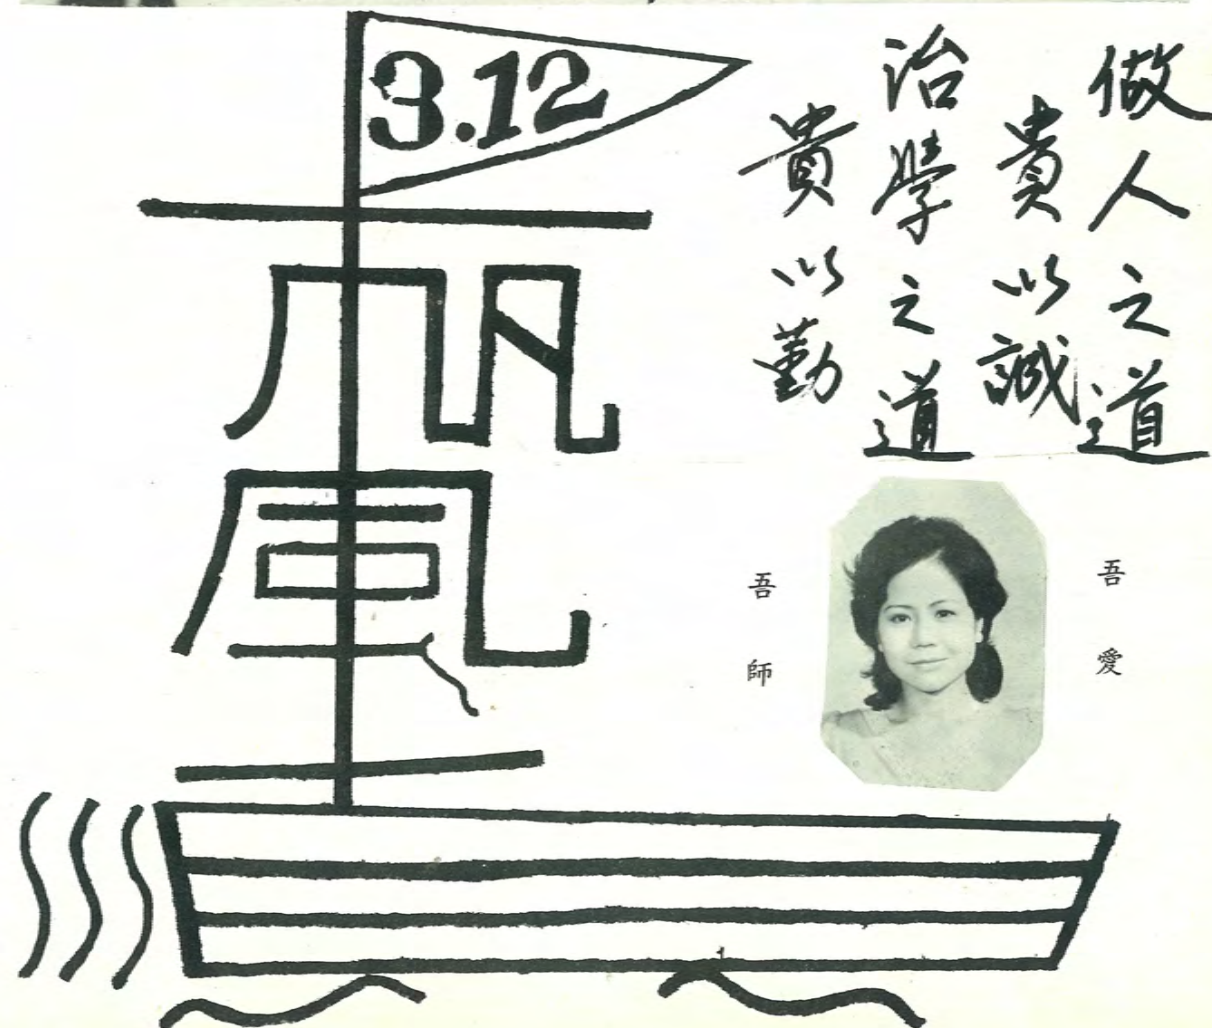 3.12
一帆風
做人之道
貴以誠
治學之道
貴以勤
吾愛
吾師